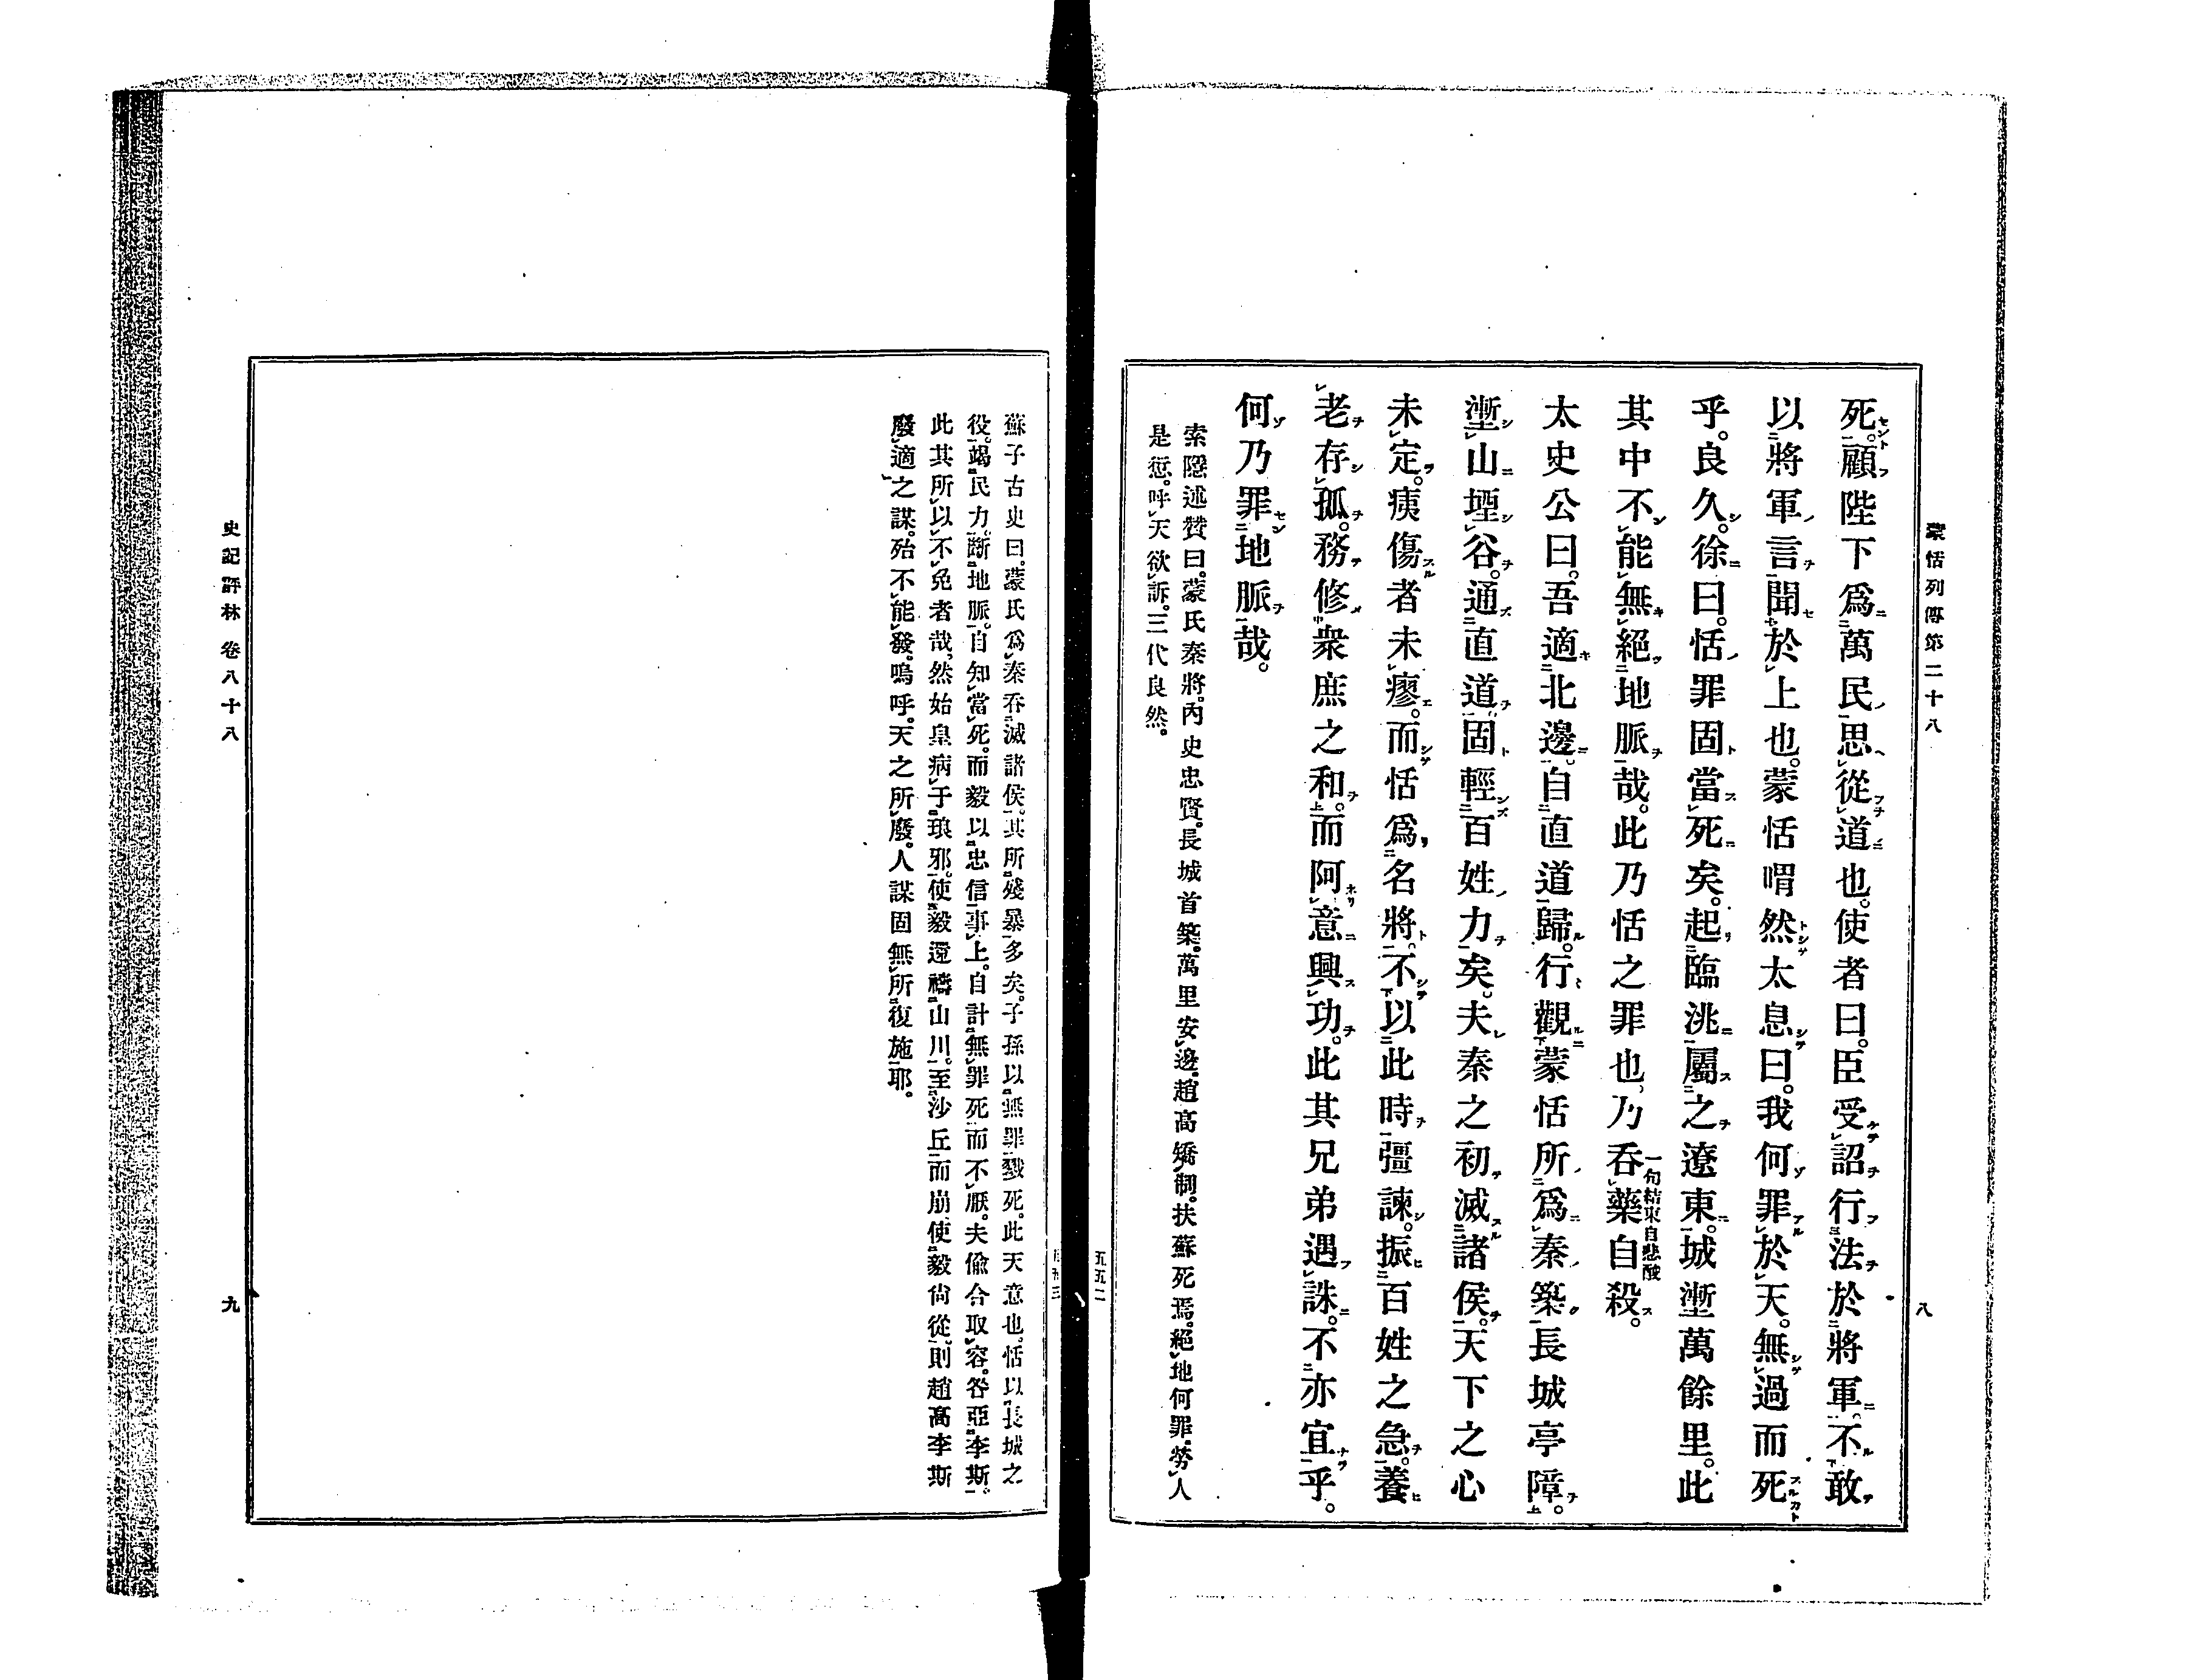 蒙恬列傳第二十八
八
死。顧陛下爲萬民思從道也。使者曰。臣受詔行法於將軍。不敢
以將軍言聞於上也。蒙恬喟然太息曰。我何罪於天。無過而死
乎。良久。徐曰。恬罪固當死矣。起臨洮屬之遼東。城壍萬餘里。此
其中不能無絕地脈哉。此乃恬之罪也。乃吞藥自殺。
一句結束自悲酸
太史公曰。吾適北邊。自直道歸。行觀蒙恬所爲秦築長城亭障。
壍山堙谷。通直道。固輕百姓力矣。夫秦之初滅諸侯。天下之心
未定。痍傷者未瘳。而恬爲名將。不以此時彊諫。振百姓之急。養
老存孤。務修衆庶之和。而阿意興功。此其兄弟遇誅。不亦宜乎。
何乃罪地脈哉。
索隱述贊曰。蒙氏秦將。內史忠賢。長城首築。萬里安邊。趙高矯制。扶蘇死焉。絕地何罪。勞人
是愆。呼天欲訴。三代良然。
五五二
蘇子古史曰。蒙氏爲秦吞滅諸侯。其所殘暴多矣。子孫以無罪戮死。此天意也。恬以長城之
役。竭民力。斷地脈。自知當死。而毅以忠信事上。自計無罪死而不厭。夫偸合取容。咎亞李斯。
此其所以不免者哉。然始皇病于琅邪。使毅還禱山川。至沙丘而崩。使毅尙從。則趙高李斯
廢適之謀。殆不能發。嗚呼。天之所廢。人謀固無所復施耶。
史記評林 卷八十八
九